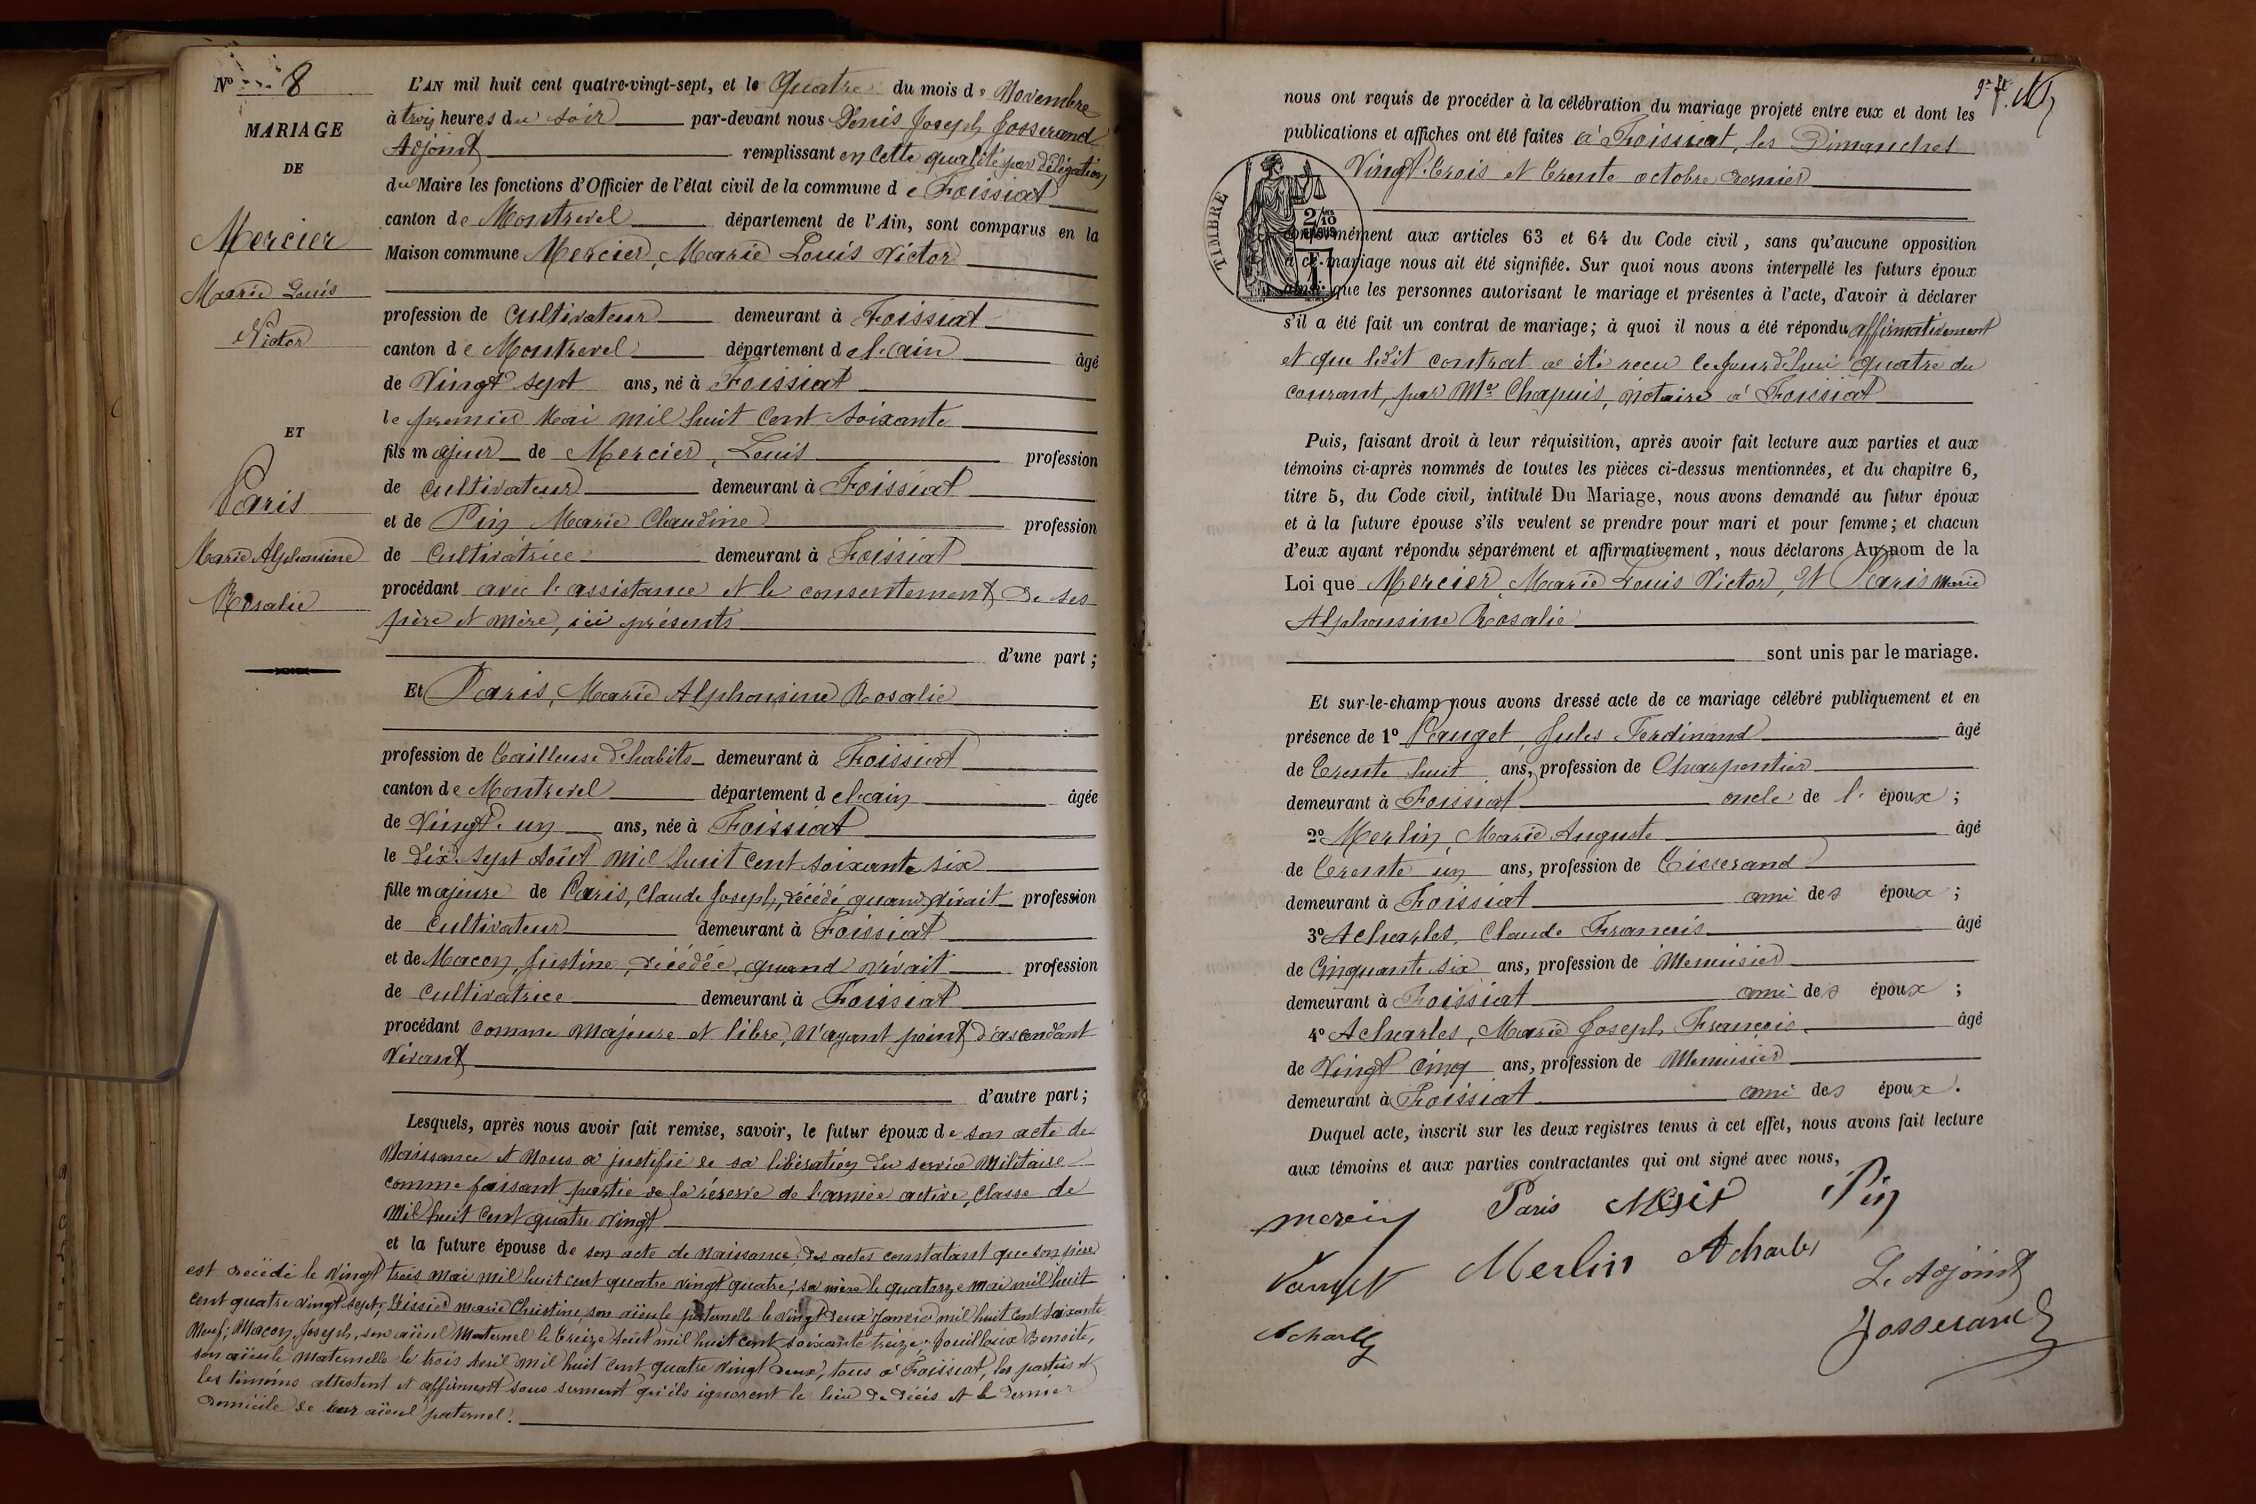 No 8
MARIAGE
DE
Mercier
Marie Louis
Victor
ET
Paris
Marie Alphonsine
Rosalie
L'AN mil huit cent quatre-vingt-sept, et le Quatre du mois de Novembre
à trois heures du soir par-devant nous Denis Joseph Josserand
Adjoint remplissant en cette qualité par délégation
du Maire les fonctions d'Officier de l'état civil de la commune de Foissiat
canton de Montrevel département de l'Ain, sont comparus en la
Maison commune Mercier, Marie Louis Victor
profession de Cultivateur demeurant à Foissiat
canton de Montrevel département de l'ain âgé
de Vingt sept ans, né à Foissiat
le premier Mai mil huit cent soixante
fils majeur de Mercier, Louis profession
de cultivateur demeurant à Foissiat
et de Pin Marie Claudine profession
de cultivatrice demeurant à Foissiat
procédant avec l'assistance et le consentement de ses
père et mère, ici présents
d'une part ;
Et Paris, Marie Alphonsine Rosalie
profession de Tailleuse d'habits demeurant à Foissiat
canton de Montrevel département de l'ain âgée
de Vingt-un ans, née à Foissiat
le dix sept Août mil huit cent soixante six
fille majeure de Paris, Claude Joseph, décédé, quand vivait profession
de cultivateur demeurant à Foissiat
et de Macon, Justine, décédée, quand vivait profession
de cultivatrice demeurant à Foissiat
procédant comme majeure et libre, n'ayant point d'ascendant
vivant
d'autre part ;
Lesquels, après nous avoir fait remise, savoir, le futur époux de son acte de
Naissance et Nous a justifié de sa libération du service militaire
comme faisant partie de la réserve de l'armée active, classe de
mil huit cent quatre vingt
et la future épouse de son acte de naissance, des actes constatant que son père
est décédé le Vingt trois mai mil huit cent quatre vingt quatre ; sa mère le quatorze mai mil huit
cent quatre vingt sept ; Tissier Marie Christine, son aïeule paternelle le vingt deux Janvier mil huit cent soixante
Neuf ; Macon, Joseph, son aïeul Maternel le treize Août mil huit cent soixante treize ; Jouilloux Benoite,
son aïeule maternelle le trois Avril mil huit cent quatre vingt deux, tous à Foissiat, les parties et
les témoins attestent et affirment sous serment qu'ils ignorent le lieu de décès et le dernier
domicile de leur aïeul paternel.
nous ont requis de procéder à la célébration du mariage projeté entre eux et dont les
publications et affiches ont été faites à Foissiat, les Dimanches
Vingt-trois et trente octobre dernier
TIMBRE
2/10
conformément aux articles 63 et 64 du Code civil, sans qu'aucune opposition
à ce mariage nous ait été signifiée. Sur quoi nous avons interpellé les futurs époux
ainsi que les personnes autorisant le mariage et présentes à l'acte, d'avoir à déclarer
s'il a été fait un contrat de mariage ; à quoi il nous a été répondu affirmativement
et que ledit contrat a été reçu cejourd'hui Quatre du
courant, par Me Chapuis, notaire à Foissiat
Puis, faisant droit à leur réquisition, après avoir fait lecture aux parties et aux
témoins ci-après nommés de toutes les pièces ci-dessus mentionnées, et du chapitre 6,
titre 5, du Code civil, intitulé Du Mariage, nous avons demandé au futur époux
et à la future épouse s'ils veulent se prendre pour mari et pour femme ; et chacun
d'eux ayant répondu séparément et affirmativement, nous déclarons Au nom de la
Loi que Mercier, Marie Louis Victor, Et Paris Marie
Alphonsine Rosalie
sont unis par le mariage.
Et sur-le-champ nous avons dressé acte de ce mariage célébré publiquement et en
présence de 1o Pauget, Jules Ferdinand âgé
de Trente huit ans, profession de Charpentier
demeurant à Foissiat oncle de l' époux ;
2o Merlin, Marie Auguste âgé
de Trente un ans, profession de Tisserand
demeurant à Foissiat ami des époux ;
3o Acharles, Claude François âgé
de Cinquante six ans, profession de Menuisier
demeurant à Foissiat ami des époux ;
4o Acharles, Marie Joseph François âgé
de Vingt cinq ans, profession de Menuisier
demeurant à Foissiat ami des époux.
Duquel acte, inscrit sur les deux registres tenus à cet effet, nous avons fait lecture
aux témoins et aux parties contractantes qui ont signé avec nous,
Paris Pin
Pauget Merlin Acharles L'Adjoint
Acharles Josserand